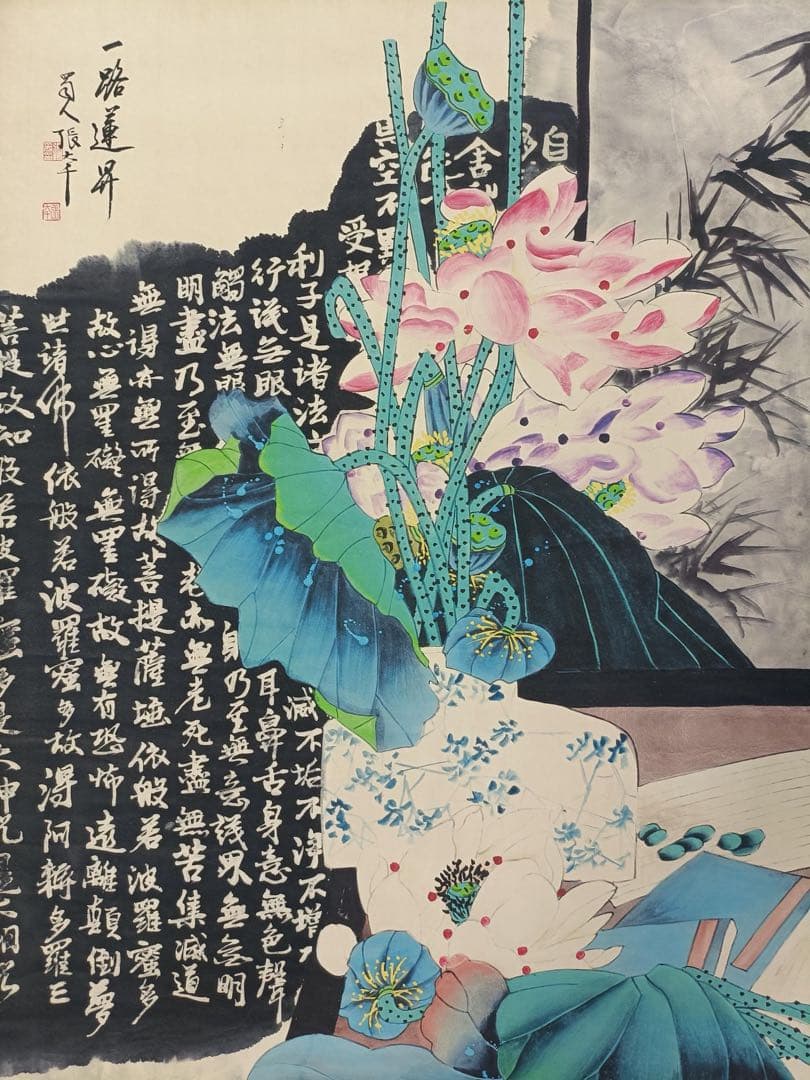 一路蓮昇
蜀人張大千
自
舍
空不異
受想
利子是諸法
滅不垢不淨不增
行識無眼
耳鼻舌身意無色聲
觸法無眼
乃至無意識界無無明
明盡乃至無
老亦無老死盡無苦集滅道
無得亦無所得故菩提薩埵依般若波羅蜜多
故心無罣礙無罣礙故無有恐怖遠離顛倒夢
世諸佛依般若波羅蜜多故得阿耨多羅三
菩提故知般若波羅蜜多是大神咒是大明咒